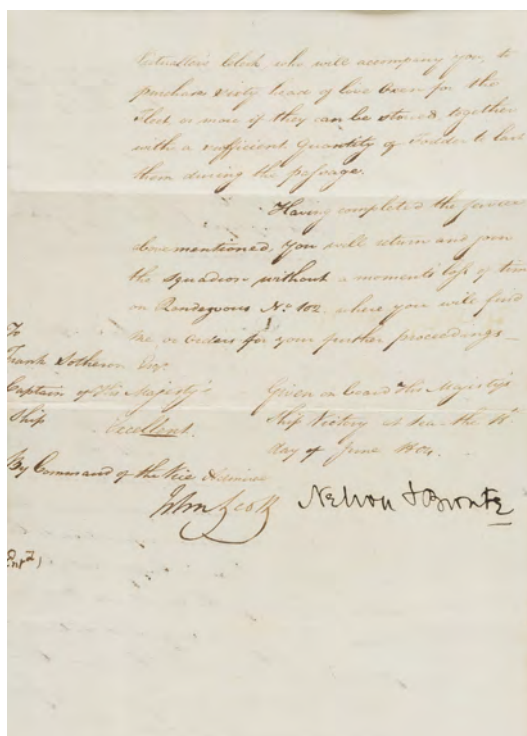 Victuallers Clerk who will accompany you, to
purchase sixty head of live Oxen for the
Fleet or more if they can be stowed together
with a sufficient Quantity of Fodder to last
them during the passage.
Having completed the service
abovementioned, you will return and join
the Squadron without a moments loss of time
on Rendezvous No. 102. where you will find
me or orders for your further proceedings_
To
Frank Sotheron Esqr.
Captain of His Majesty's
Ship Excellent.
Given on board His Majesty's
Ship Victory at Sea the
day of June 1804.
By Command of the Vice Admiral
John Scott
Nelson & Bronte